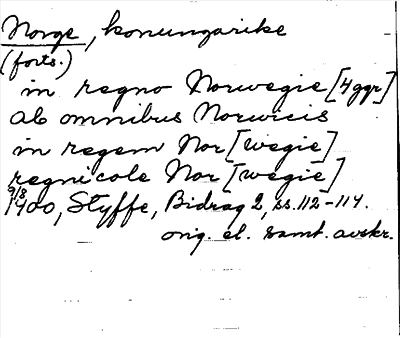 Norge, konungarike
(forts.)
in regno Norwegie [4 ggr]
ab omnibus Norwicis
in regem Nor[wegie]
regnicole Nor[wegie]
9/8
1400, Styffe, Bidrag 2, ss. 112-114.
orig. el. samt. avskr.